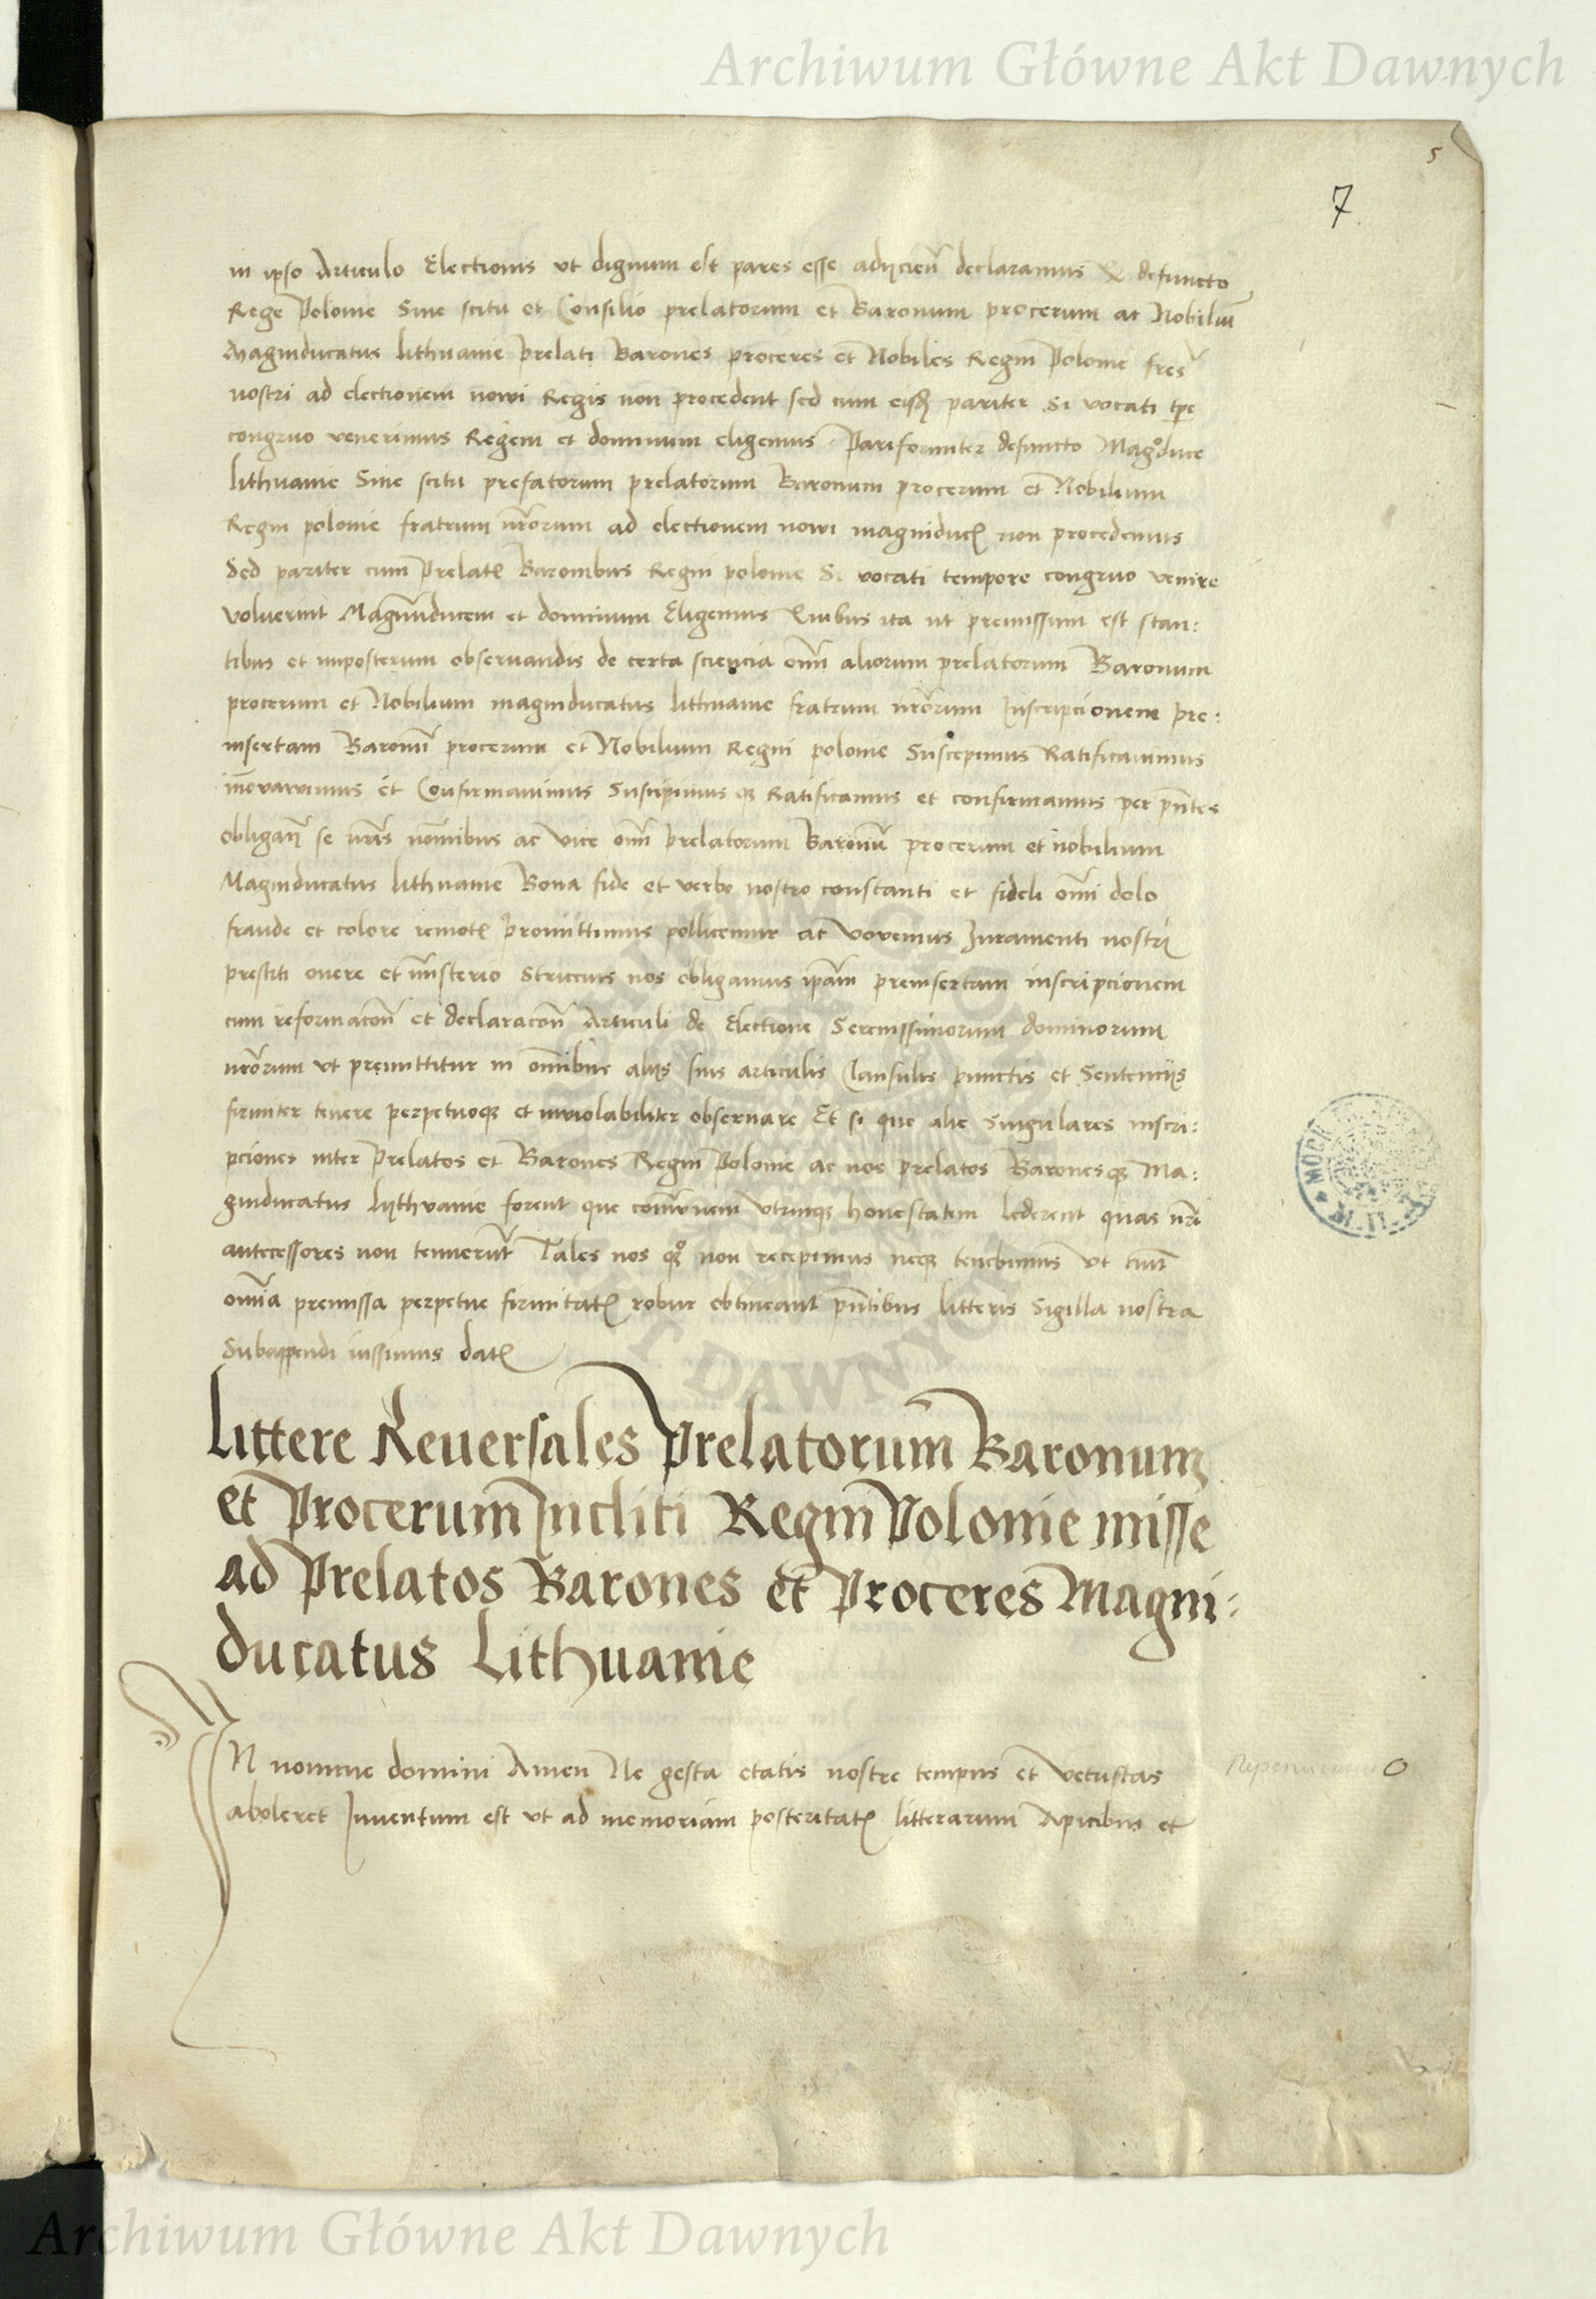 Archiwum Główne Akt Dawnych
5
7
in ipso Articulo Electionis ut dignum est pares esse adijcien̄ declaramus Q defuncto
Rege Polonie Sine scitu et Consilio prelatorum et Baronum procerum ac Nobiliū
Magniducatus lithuanie prelati Barones proceres et Nobiles Regni Polonie fr̄es
nostri ad electionem novi Regis non procedent sed cum eisdꝫ pariter Si vocati tp̄e
congruo venerimus Regem et dominum eligemus Pariformiter defuncto Magºduce
lithuanie Sine scitu prefatorum prelatorum Baronum procerum et Nobilium
Regni polonie fratrum nr̄orum ad electionem novi magniducꝭ non procedemus
Sed pariter cum Prelatꝭ Baronibus Regni polonie Si vocati tempore congruo venire
voluerint Magnūducem et dominum Eligemus Quibus ita ut premissum est stan:
tibus et imposterum observandis de certa sciencia om̄ aliorum prelatorum Baronum
procerum et Nobilium magniducatus lithuanie fratrum nr̄orum Inscripcionem pre:
insertam Baronū procerum et Nobilium Regni polonie Suscepimus Ratificavimus
iñovavimus et Confirmavimus Suscipimus qꝫ Ratificamus et confirmamus per pn̄tes
obligan̄ se nr̄is noı̄bus ac vice om̄ prelatorum Baronū procerum et nobilium
Magniducatus lithuanie Bona fide et verbo nostro constanti et fideli om̄i dolo
fraude et colore remotꝭ promittimus pollicemur ac vovemus Iuramenti nostri
prestiti onere et mı̄sterio Strictius nos obligamus ip̄am preinsertam inscripcionem
cum reformacōn̄ et declaracōn̄ Articuli de Electione Serenissimorum dominorum
nr̄orum ut premittitur in om̄ibus alijs suis articulis Clausulis punctis et Sentencijs
firmiter tenere perpetuoqꝫ et inviolabiliter observare Et si que alie Singulares inscri:
pciones inter prelatos et Barones Regni Polonie ac nos prelatos Baronesqꝫ Ma:
gniducatus lijthvanie forent que com̄unem utrinqꝫ honestatem lederent quas nr̄i
antecessores non tenuerūt Tales nos qꝫº non recepimus neqꝫ tenebimus Ut
om̄ia premissa perpetue firmitatꝭ robur obtineant pn̄tibus litteris Sigilla nostra
Subappendi iussimus datꝭ
Littere Reversales Prelatorum Baronum
et Procerum Incliti Regni Polonie misse
ad Prelatos Barones et Proceres Magni:
ducatus Lithuanie
IN nomine domini Amen Ne gesta etatis nostre tempus et vetustas
aboleret Inventum est ut ad memoriam posteritatꝭ litterarum Apicibus et
Archiwum Główne Akt Dawnych